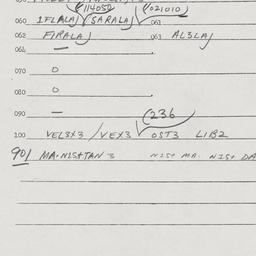 (114052 (021010)
060 IFLALAJ (SARALAJ 061
062 FIRALAJ 063 AL3LAJ
064 —
070 0
080 0
090 — (236
100 VEL3X3 / VEX3 OST3 LIB2
901 MA.NIS+TAN 3 NIS+ MA. NIS+ DA